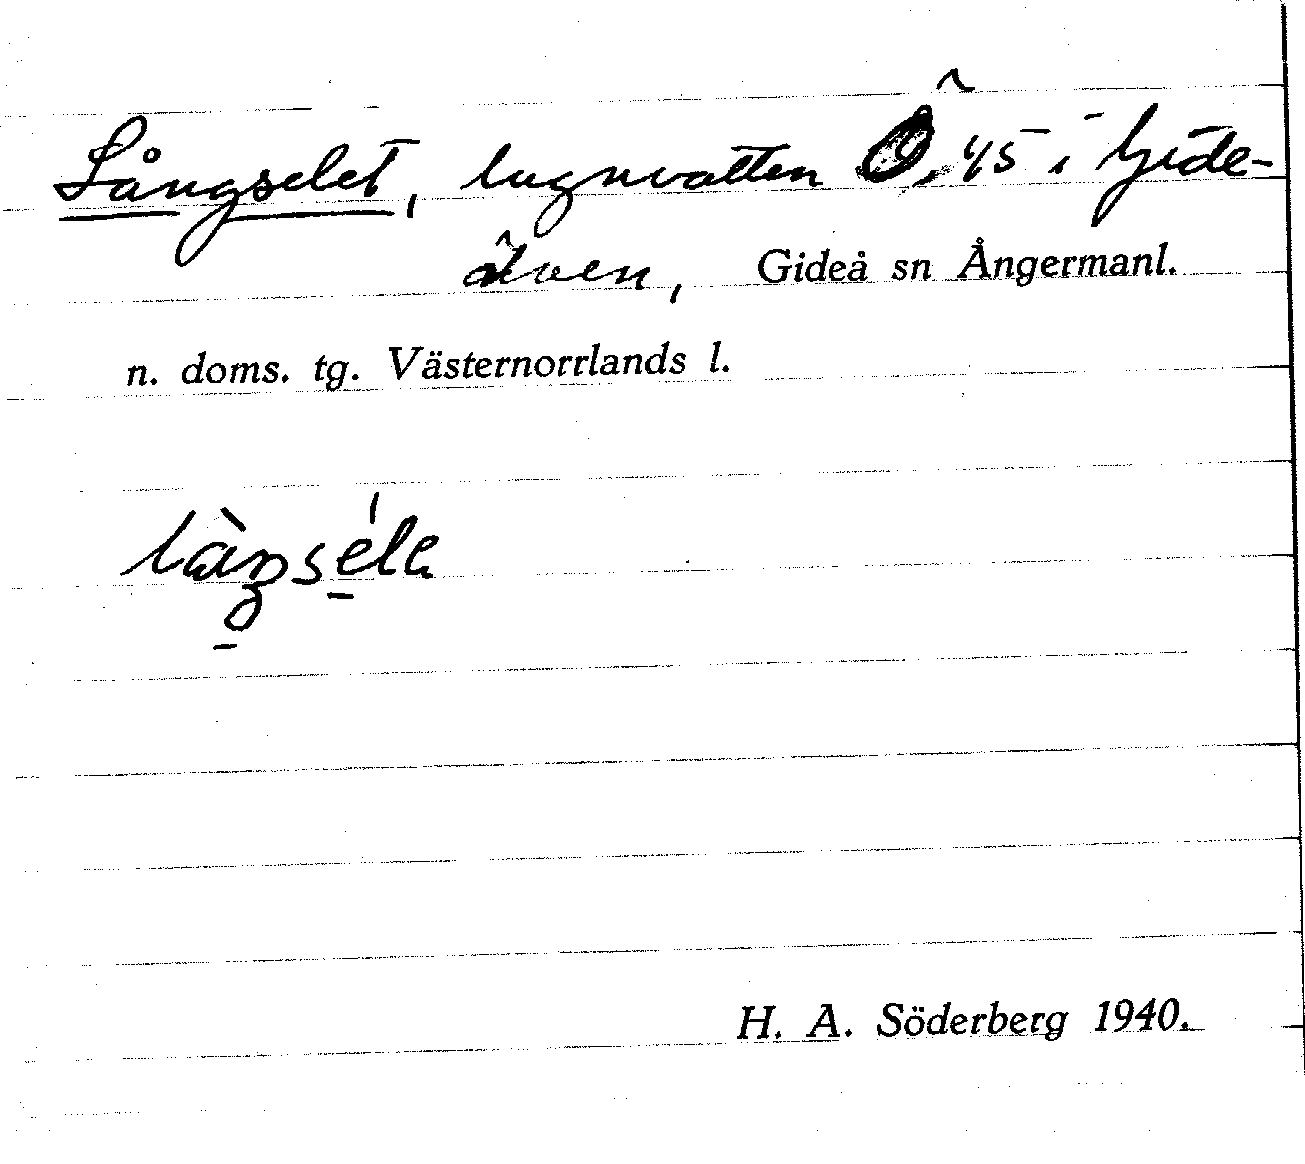 Långselet, lugnvatten Ö. 45 i Gide-
älven, Gideå sn Ångermanl.
n. doms. tg. Västernorrlands l.
H. A. Söderberg 1940.